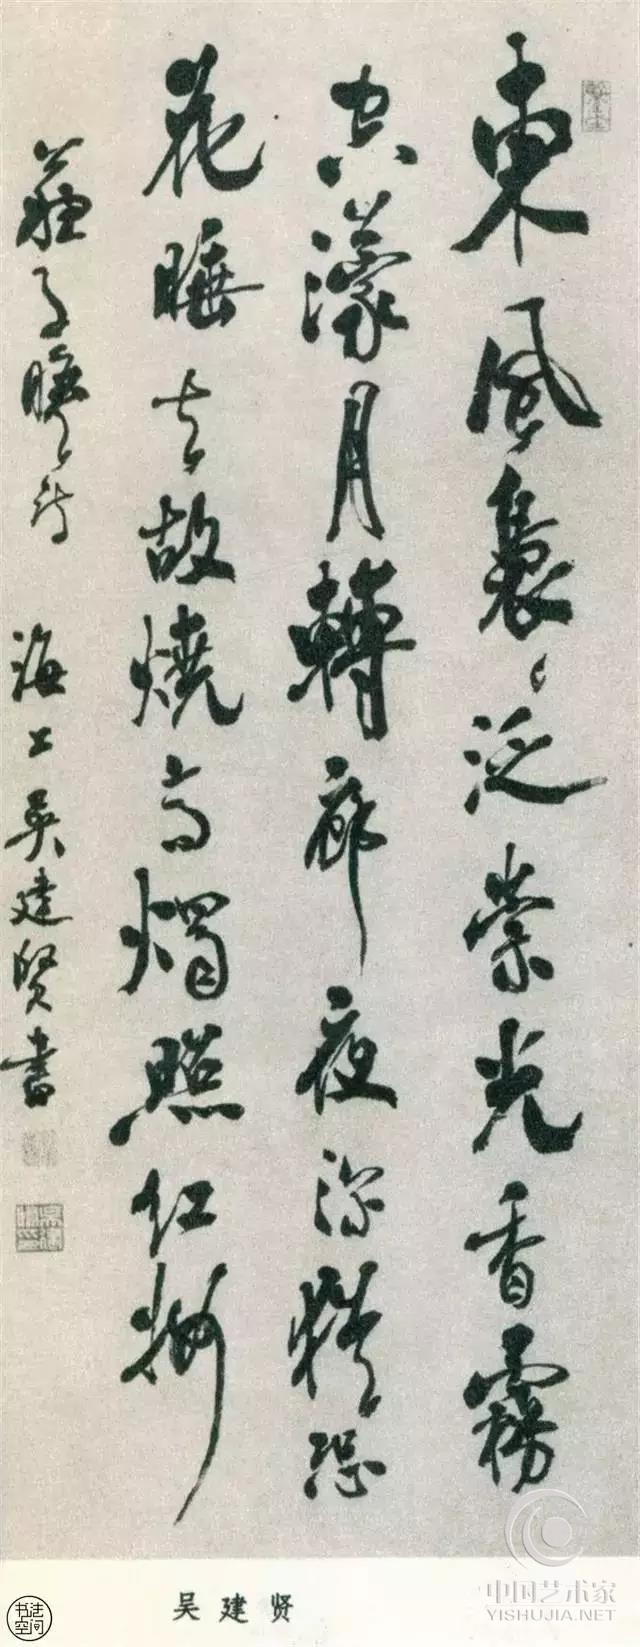 東風裊裊泛崇光香霧
空濛月轉廊夜深恐
花睡去故燒高燭照紅妝
蘇子瞻詩 海上吳建賢書
吴建贤
书法空间
中国艺术家
YISHUJIA.NET